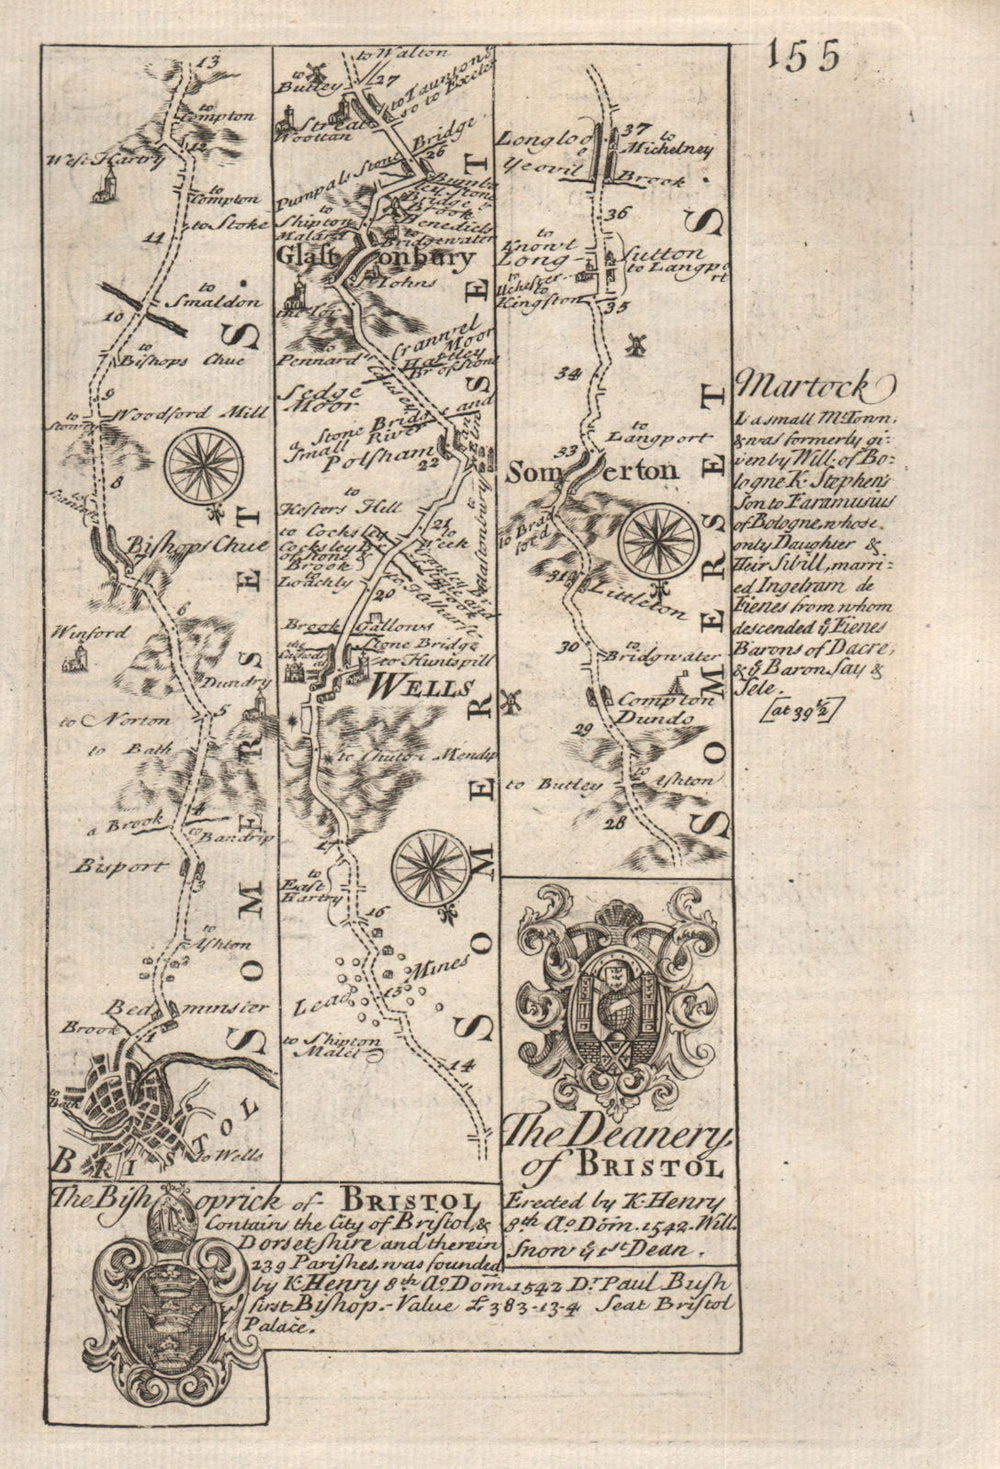 155
13
to
Compton
12
West Hartry
to
Compton
to Stoke
11
to
Smaldon
10
to
Bishops Chue
9
Woodford Mill
to
Stowey
8
Bishops Chue
6
Winford
Dundry
5
to Norton
to Bath
4
a Brook
to
Bandrip
Bisport
3
to
Ashton
2
Bedminster
Brook
1
to
Bath
BRISTOL
to Wells
SOMERSET
to Walton
27
to
Butley
to Taunton &
so to Exeter
Street
Woottan
Bridge
26
Pumpals Stone
Bridge
Brook
Benedicts
to
Bridgewater
to
Shipton
Malard
Glastonbury
St Iohns
the Tor
to
Pennard
Crannel
Moor
Hartley
Br of stone
Causey
Sedge
Moor
a Stone Bridg and
Small River
Polsham
22
to
Hosters Hell
21
to
Week
to Cocksley
Cocksley Br
of stone &
Brook
to
Loachly
20
Brook
Gallows
Stone Bridge
to Huntspill
the
Cathedral
WELLS
to Chuton Mendip
17
to
East
Hartry
16
Lead Mines
15
to Shipton
Malet
14
SOMERSET
37
Longloo
to
Michelney
Yeovil
Brook
36
to
Knowl
Long
Sutton
to Langport
to
Ilchester
to
Kingston
35
34
to
Langport
33
Somerton
to Bradford
31
Littleton
30
to
Bridgwater
Compton
Dundo
29
to
Ashton
to Butley
28
SOMERSET
Martock
Is a small M. Town,
& was formerly gi-
ven by Will. of Bo:
logne K. Stephen's
Son to Faramusius
of Bologne, whose
only Daughter &
Heir Sibill, marri:
ed Ingelram de
Fienes from whom
descended ye Fienes
Barons of Dacre,
& ye Baron Say &
Sele.
[at 39 1/2]
The Deanery,
of BRISTOL
Erected by K. Henry
8th Ao Dom. 1542. Will.
Snow ye 1st Dean.
The Bishoprick of BRISTOL
Contains the City of Bristol, &
Dorsetshire and therein
239 Parishes, was founded
by K. Henry 8th Ao Dom. 1542 Dr Paul Bush
first Bishop. - Value £ 383-13-4 Seat Bristol
Palace.